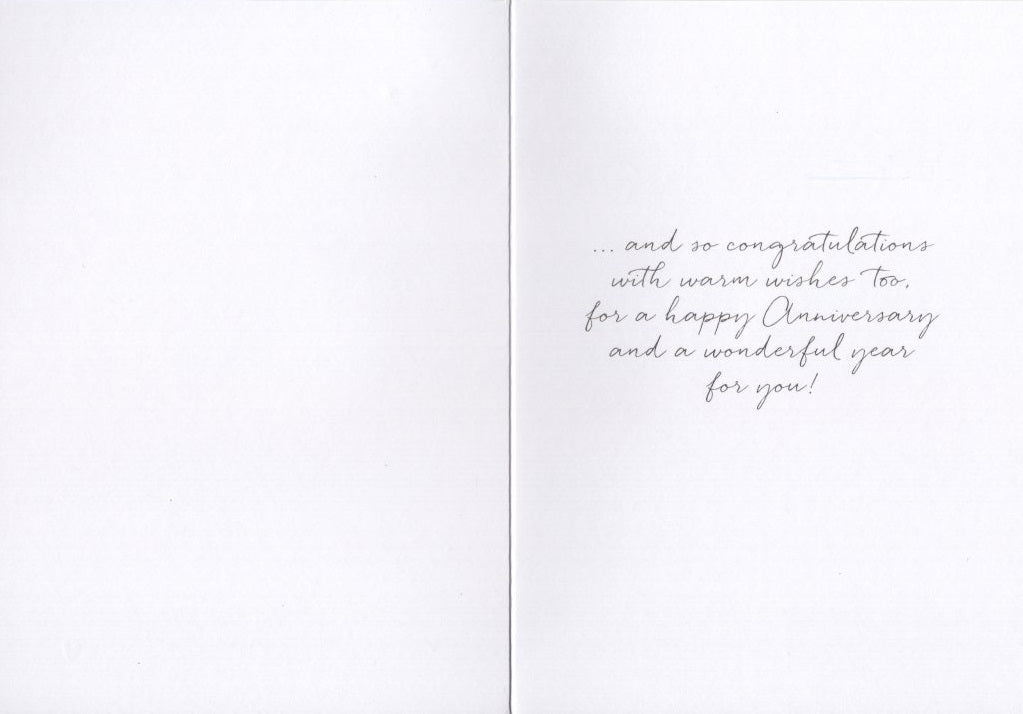 ... and so congratulations
with warm wishes too,
for a happy Anniversary
and a wonderful year
for you!